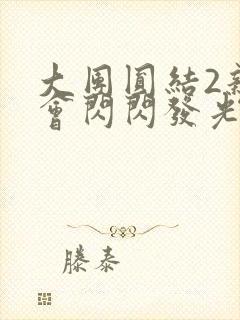 大團圓結2新
會閃閃發光
滕泰